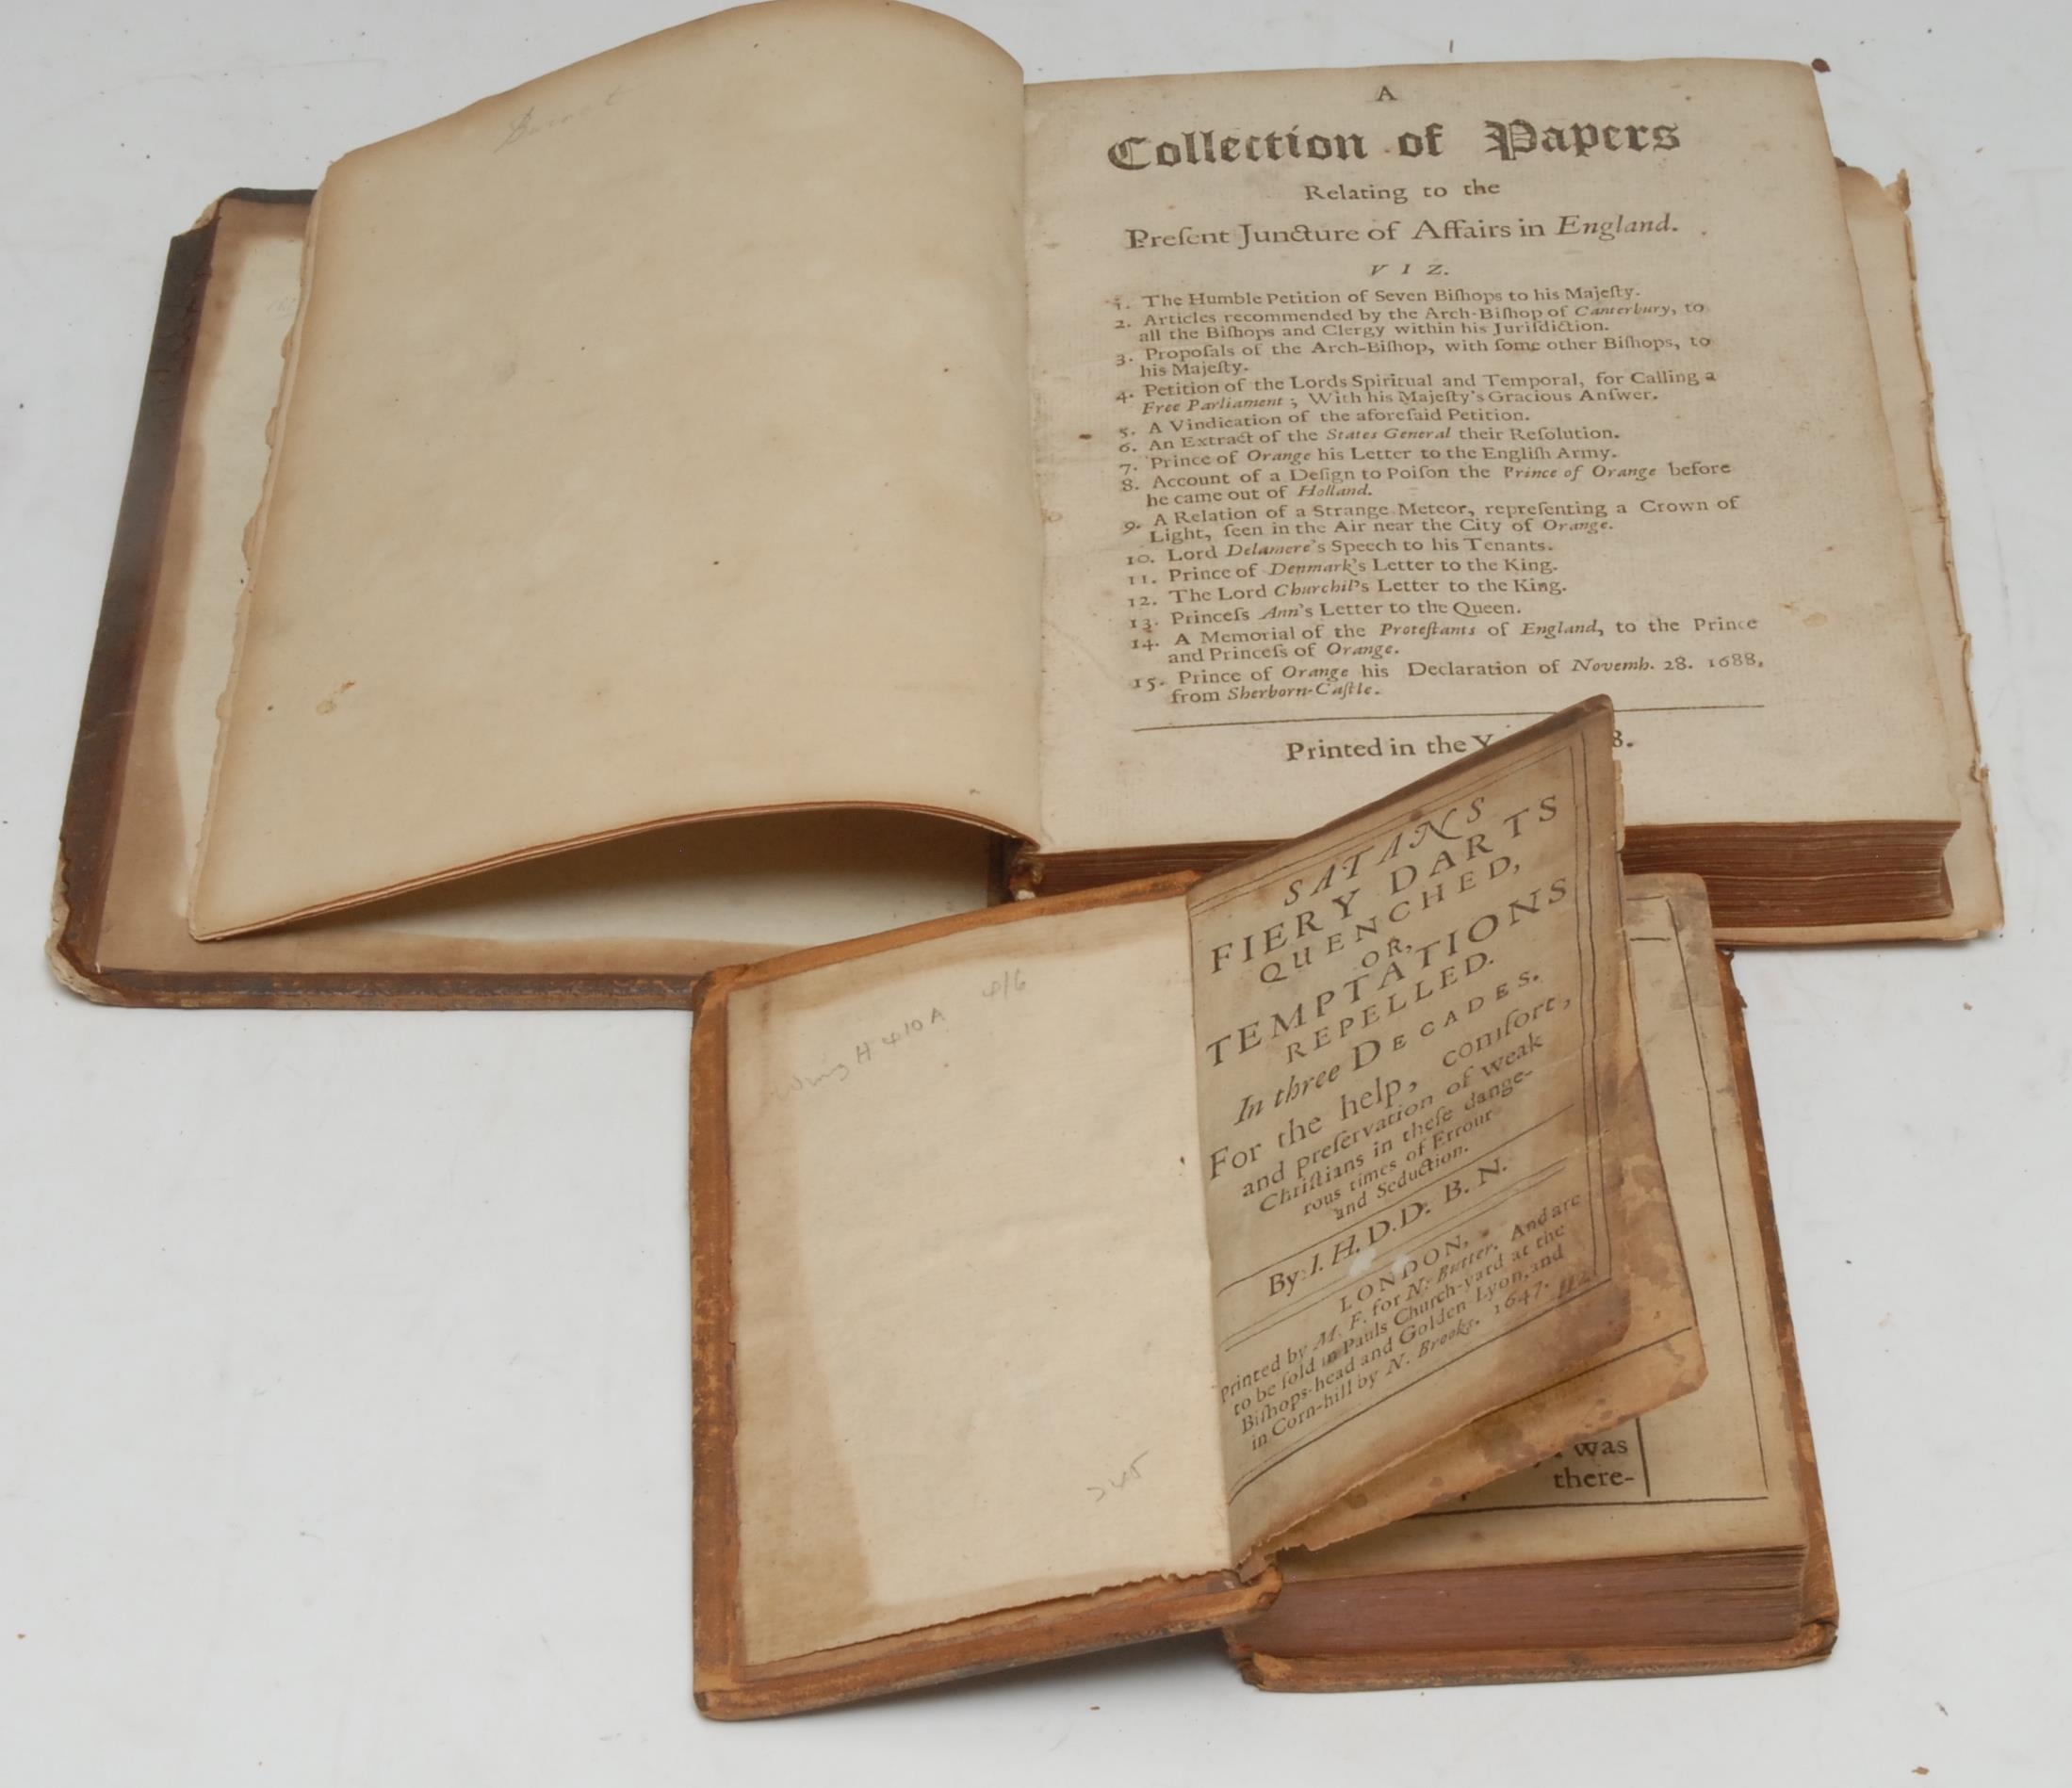 A
Collection of Papers
Relating to the
Preſent Juncture of Affairs in England.
VIZ.
1. The Humble Petition of Seven Biſhops to his Majeſty.
2. Articles recommended by the Arch-Biſhop of Canterbury, to
all the Biſhops and Clergy within his Juriſdiction.
3. Propoſals of the Arch-Biſhop, with ſome other Biſhops, to
his Majeſty.
4. Petition of the Lords Spiritual and Temporal, for Calling a
Free Parliament; With his Majeſty's Gracious Anſwer.
5. A Vindication of the aforeſaid Petition.
6. An Extract of the States General their Reſolution.
7. Prince of Orange his Letter to the Engliſh Army.
8. Account of a Deſign to Poiſon the Prince of Orange before
he came out of Holland.
9. A Relation of a Strange Meteor, repreſenting a Crown of
Light, ſeen in the Air near the City of Orange.
10. Lord Delamere's Speech to his Tenants.
11. Prince of Denmark's Letter to the King.
12. The Lord Churchil's Letter to the King.
13. Princeſs Ann's Letter to the Queen.
14. A Memorial of the Proteſtants of England, to the Prince
and Princeſs of Orange.
15. Prince of Orange his Declaration of Novemb. 28. 1688,
from Sherborn-Caſtle.
Printed in the Y 8.
Wing H 410A 4/6
SATANS
FIERY DARTS
QUENCHED,
OR,
TEMPTATIONS
REPELLED.
In three DECADES.
For the help, comfort,
and preſervation of weak
Chriſtians in theſe dange-
rous times of Errour
and Seduction.
By I. H. D.D. B. N.
LONDON,
Printed by M. F. for N. Butter. And are
to be ſold in Pauls Church-yard at the
Biſhops-head and Golden Lyon, and
in Corn-hill by N. Brooks. 1647.
was
there-